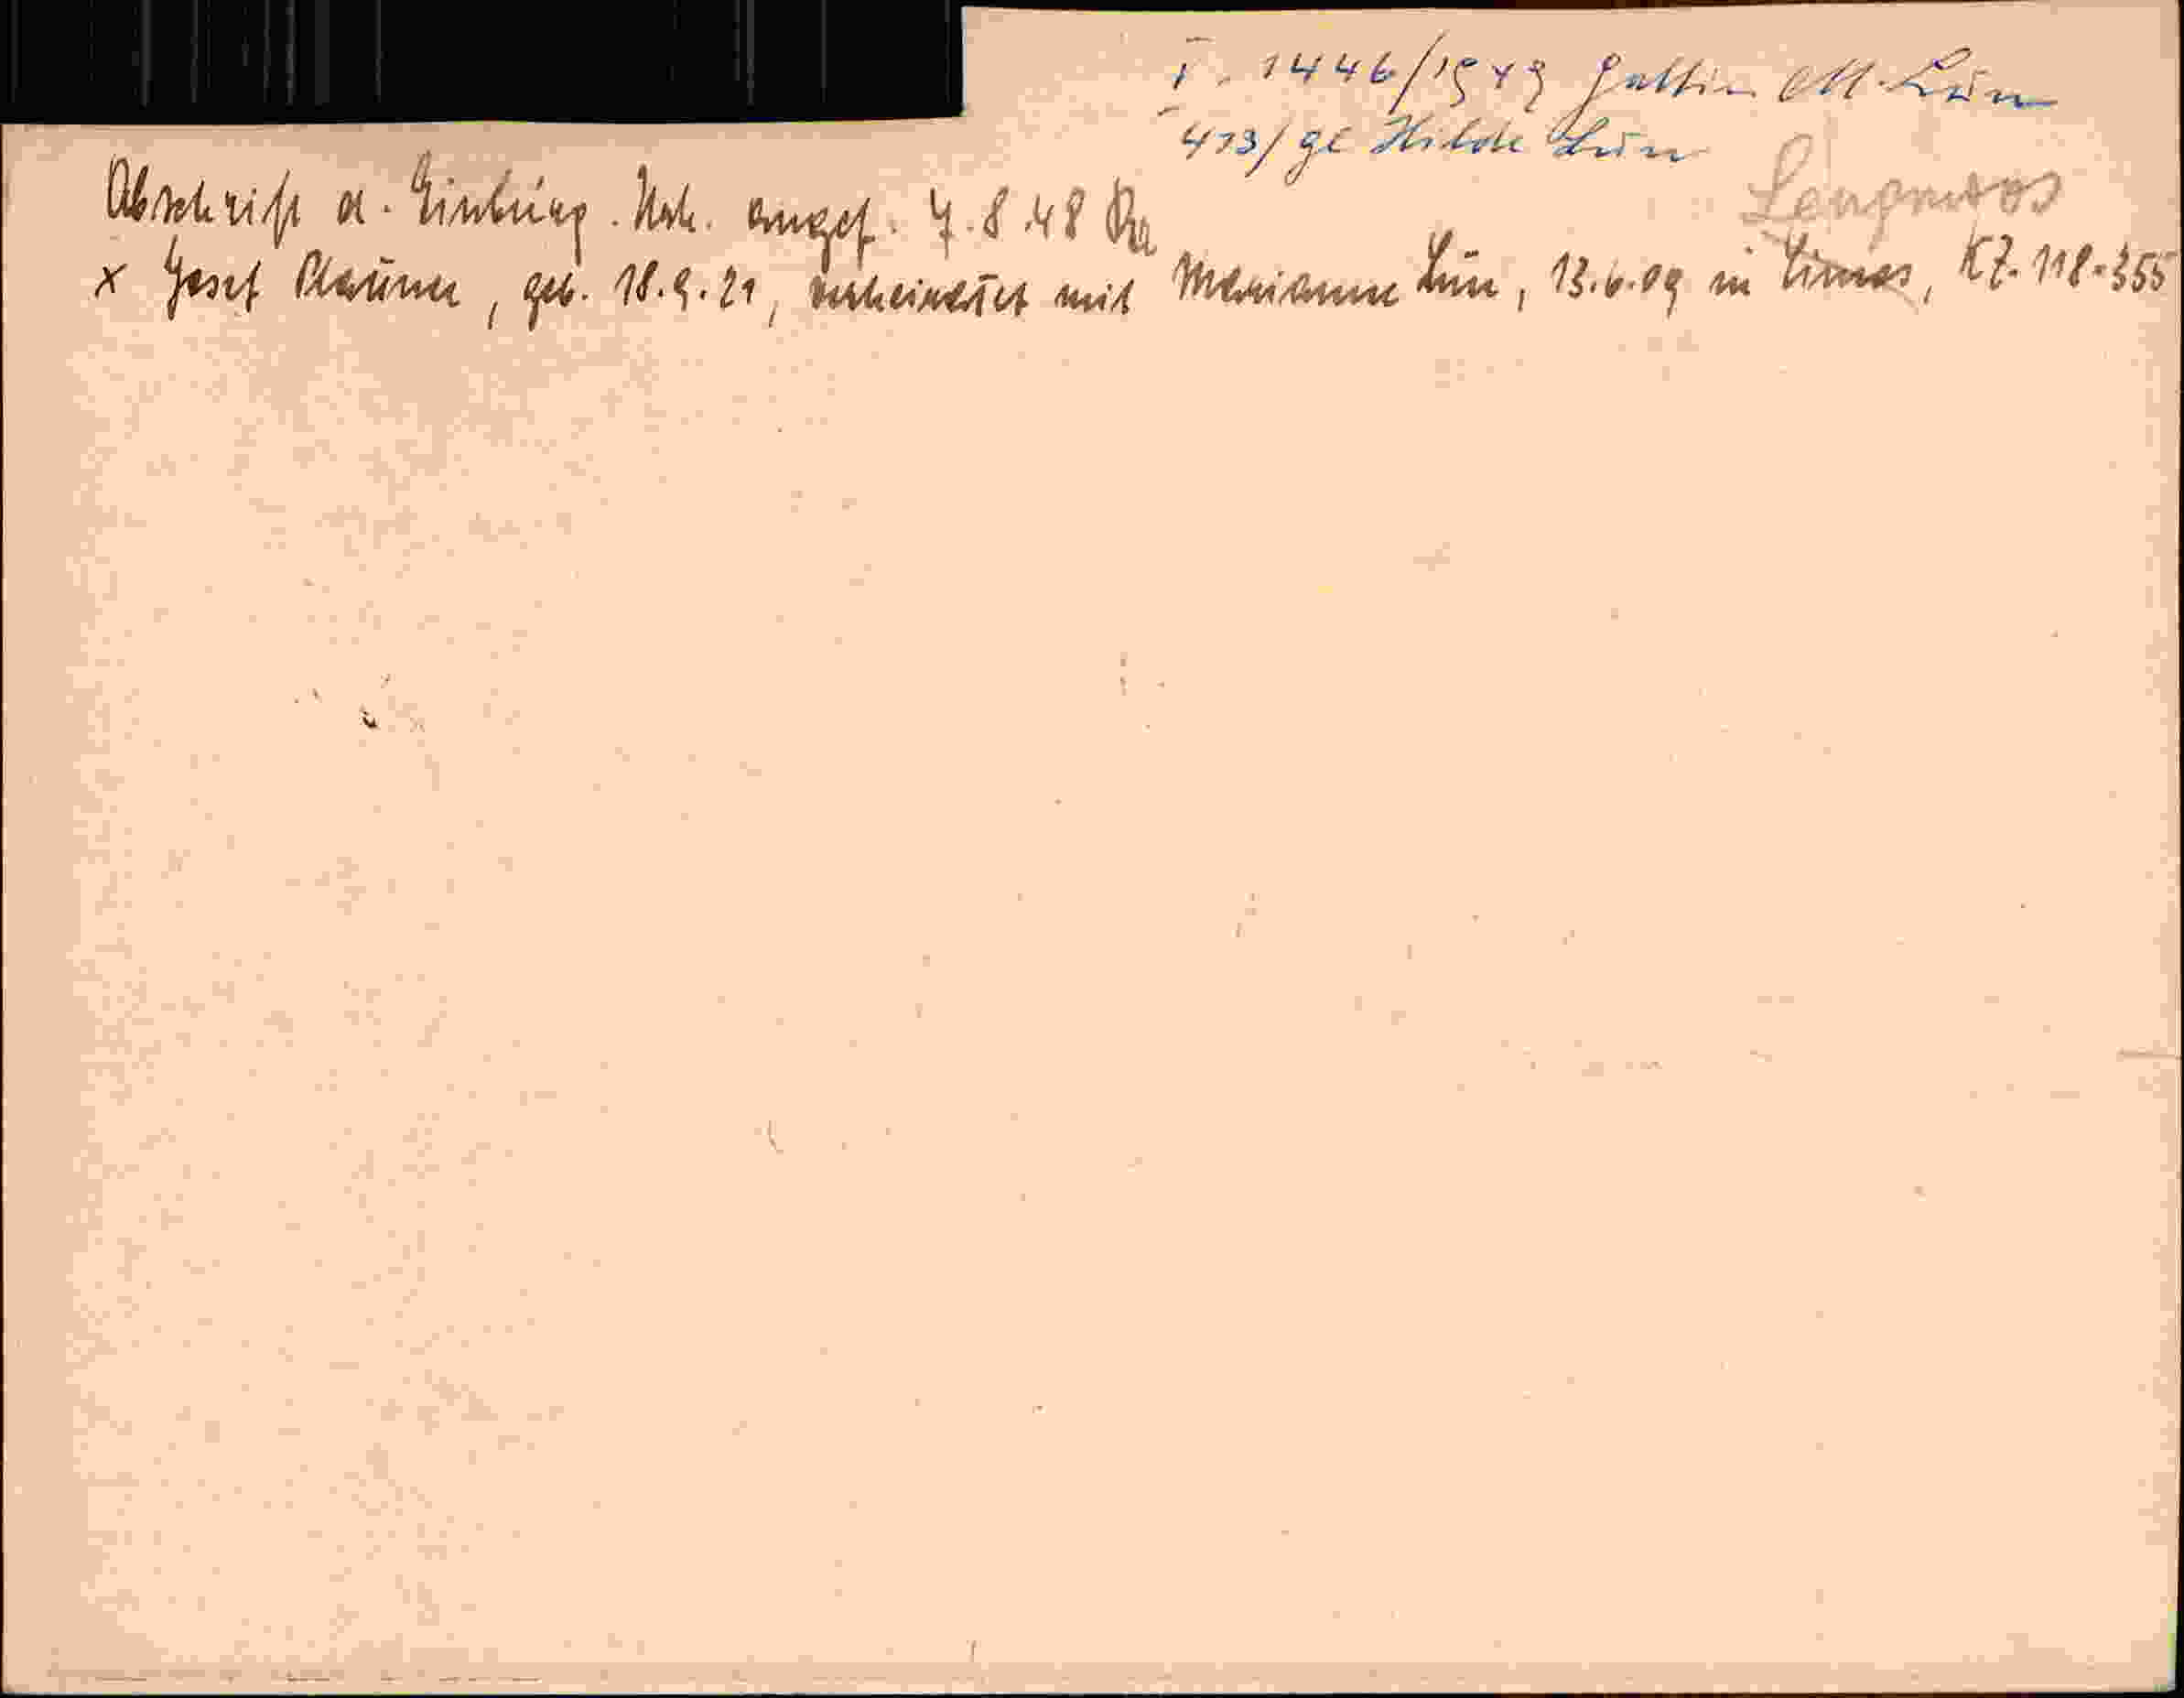 I. 1446/1949 Gattin M. Lun
413/ge Hilde Lun
Lengmoos
Abschrift d. Einbürg. Urk. angef. 7.8.48
x Josef Plauner, geb. 18.9.21, verheiratet mit Marianne Lun, 13.6.09 in, KZ. 118.355